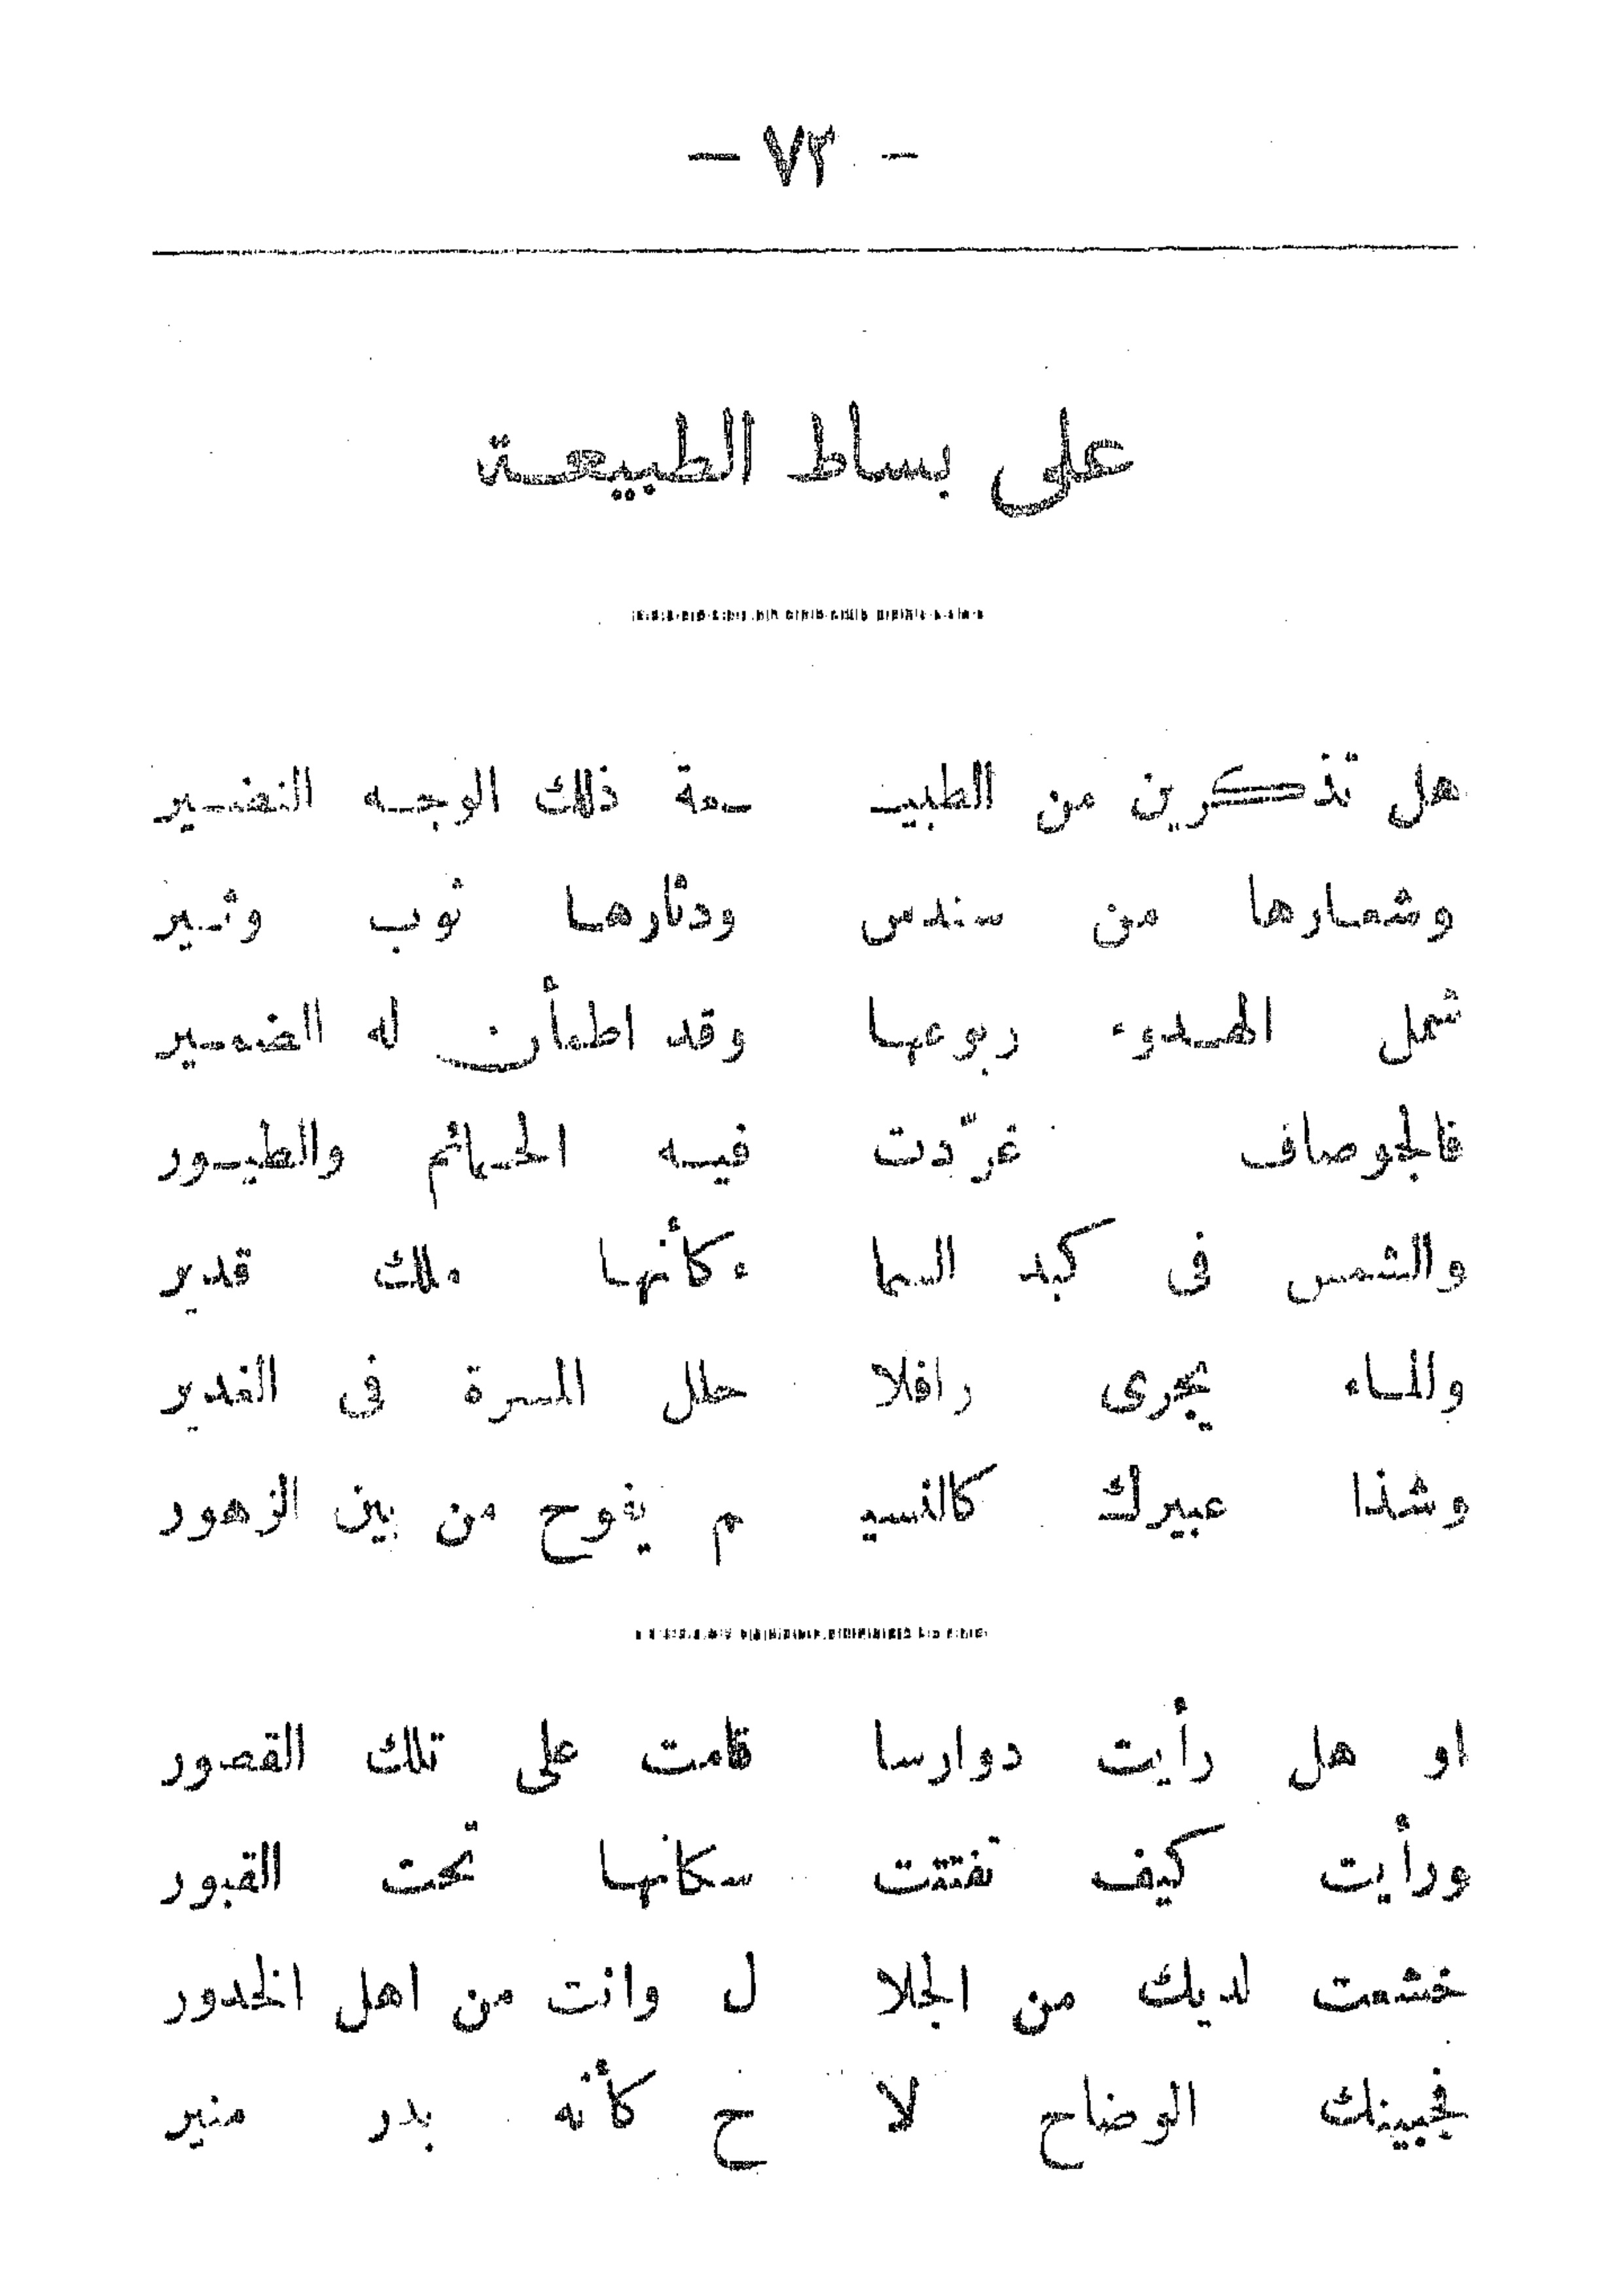 — ٧٣ —
على بساط الطبيعة
هل تذكرين من الطبيـ ـعة ذلك الوجه النضير
وشعارها من سندس ودثارها ثوب وثير
شمل الهدوء ربوعها وقد اطمأن له الضمير
فالجو صاف غرّدت فيه الحمائم والطيور
والشمس فى كبد السما ء كأنها ملك قدير
والماء يجرى رافلا حلل المسرة فى الغدير
وشذا عبيرك كالنسيـ م يفوح من بين الزهور
او هل رأيت دوارسا قامت على تلك القصور
ورأيت كيف تفتتت سكانها تحت القبور
خشعت لديك من الجلا ل وانت من اهل الخدور
فجبينك الوضاح لا ح كأنه بدر منير